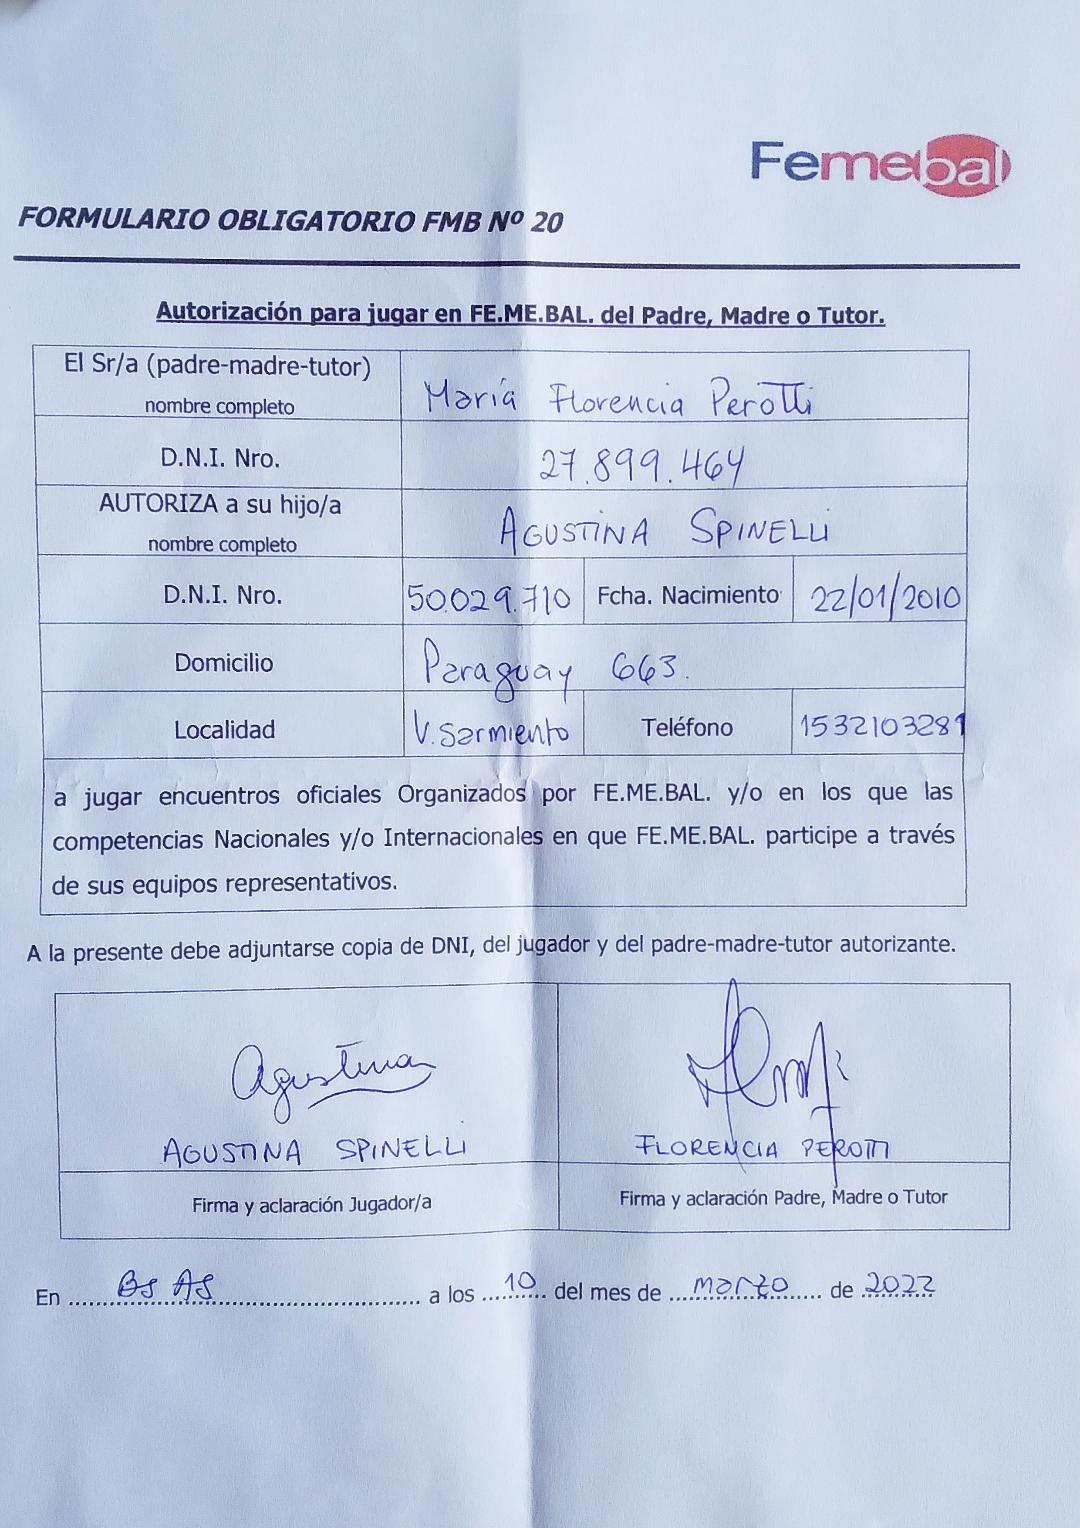 Femebal
FORMULARIO OBLIGATORIO FMB Nº 20
Autorización para jugar en FE.ME.BAL. del Padre, Madre o Tutor.
El Sr/a (padre-madre-tutor)
nombre completo
María Florencia Perotti
D.N.I. Nro.
27.899.464
AUTORIZA a su hijo/a
nombre completo
AGUSTINA SPINELLI
D.N.I. Nro.
50.029.710
Fcha. Nacimiento
22/01/2010
Domicilio
Paraguay 663.
Localidad
V. Sarmiento
Teléfono
1532103281
a jugar encuentros oficiales Organizados por FE.ME.BAL. y/o en los que las
competencias Nacionales y/o Internacionales en que FE.ME.BAL. participe a través
de sus equipos representativos.
A la presente debe adjuntarse copia de DNI, del jugador y del padre-madre-tutor autorizante.
Agustina
AGUSTINA SPINELLI
FLORENCIA PEROTTI
Firma y aclaración Jugador/a
Firma y aclaración Padre, Madre o Tutor
En Bs As a los 10 del mes de marzo de 2022